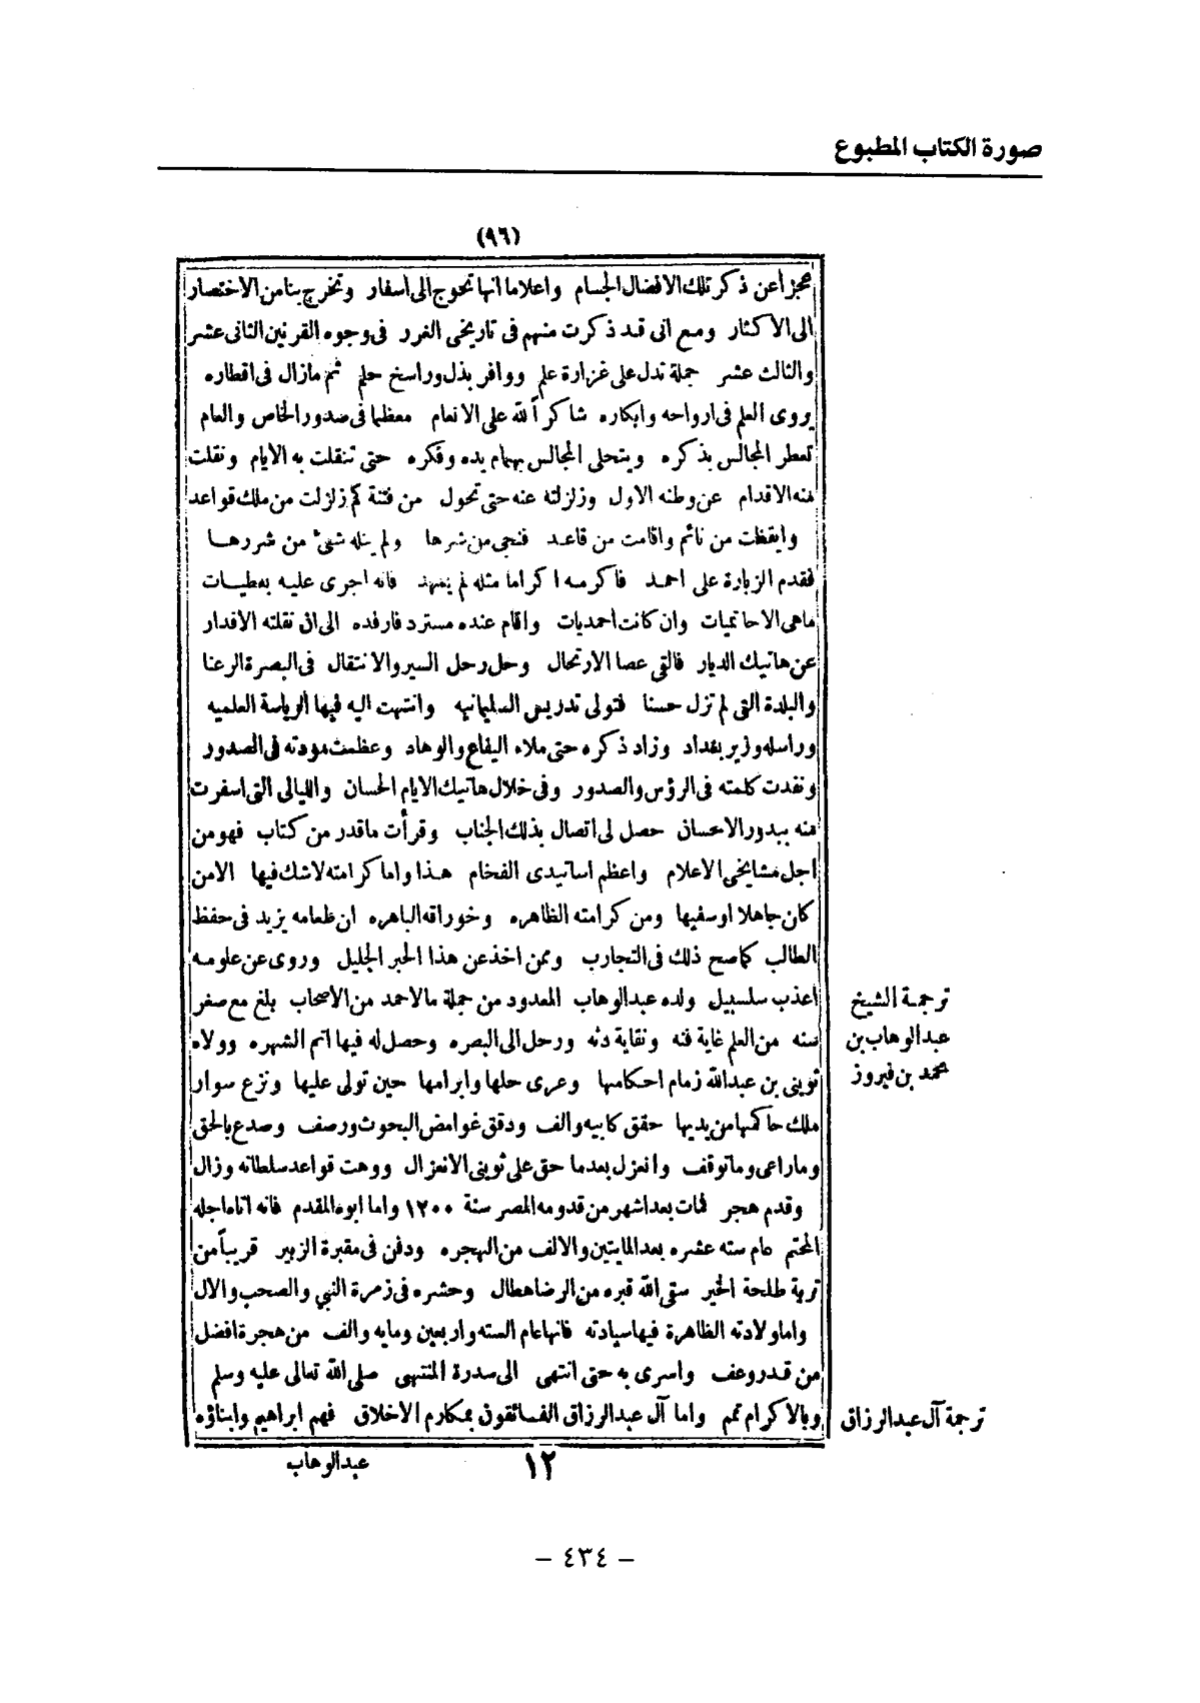 صورة الكتاب المطبوع
(٩٦)
عجزاً عن ذكر تلك الافضال الجسام واعلاما انها تحوج الى اسفار وتخرج بنا من الاختصار
الى الاكثار ومع انى قد ذكرت منهم فى تاريخى الغرر فى وجوه القرنين الثانى عشر
والثالث عشر جملة تدل على غزارة علم ووافر بذل وراسخ حلم ثم مازال فى اقطاره
يروى العلم فى ارواحه وابكاره شاكراً لله على الانعام معظما فى صدور الخاص والعام
تعطر المجالس بذكره ويتحلى المجالس بهمام يده وفكره حتى تنقلت به الايام ونقلت
منه الاقدام عن وطنه الاول وزلزلته عنه حتى تحول من فتنة كم زلزلت من ملك قواعد
وايقظت من نائم واقامت من قاعد فنجى من شرها ولم ينله شئ من شررها
فقدم الزبارة على احمد فاكرمه اكراما مثله لم يعهد فانه اجرى عليه بعطيات
ماهى الا حاتميات وان كانت أحمديات واقام عنده مسترد فارفده الى ان نقلته الاقدار
عن هاتيك الديار فالقى عصا الارتحال وحل رحل السير والانتقال فى البصرة الرعنا
والبلدة التى لم تزل حسنا فتولى تدريس السليمانيه وانتهت اليه فيها الرياسة العلميه
وراسله وزير بغداد وزاد ذكره حتى ملاء البقاع والوهاد وعظمت مودته فى الصدور
ونفدت كلمته فى الرؤس والصدور وفى خلال هاتيك الايام الحسان والليالى التى اسفرت
منه ببدور الاحسان حصل لى اتصال بذلك الجناب وقرأت ماقدر من كتاب فهو من
اجل مشايخى الاعلام واعظم اساتيدى الفخام هذا واما كرامته لاشك فيها الامن
كان جاهلا اوسفيها ومن كرامته الظاهره وخوراقه الباهره ان طعامه يزيد فى حفظ
الطالب كما صح ذلك فى التجارب وممن اخذ عن هذا الحبر الجليل وروى عن علومه
اعذب سلسبيل ولده عبدالوهاب المعدود من جملة مالاحمد من الاصحاب بلغ مع صغر
سنه من العلم غاية فنه ونقاية دنه ورحل الى البصره وحصل له فيها اتم الشهره وولاه
ثوينى بن عبدالله زمام احكامها وعرى حلها وابرامها حين تولى عليها ونزع سوار
ملك حاكمها من يديها حقق كابيه والف ودقق غوامض البحوث ورصف وصدع بالحق
وماراعى وماتوقف وانعزل بعدما حق على ثوينى الانعزال ووهت قواعد سلطانه وزال
وقدم هجر فمات بعد اشهر من قدومه المصر سنة ١٢٠٠ واما ابوه المقدم فانه اتاه اجله
المحتم عام سته عشره بعد المايتين والالف من الهجره ودفن فى مقبرة الزبير قريباً من
تربة طلحة الخير سقى الله قبره من الرضا هطال وحشره فى زمرة النبي والصحب والال
واماولادته الظاهرة فيها سيادته فانها عام السته واربعين ومايه والف من هجرة افضل
من قد روعف واسرى به حتى انتهى الى سدرة المنتهى صلى الله تعالى عليه وسلم
وبالاكرام تمم واما آل عبدالرزاق الفائقون بمكارم الاخلاق فهم ابراهيم وابناؤه
ترجمة الشيخ
عبدالوهاب بن
محمد بن فيروز
ترجمة آل عبدالرزاق
١٢
عبدالوهاب
– ٤٣٤ –